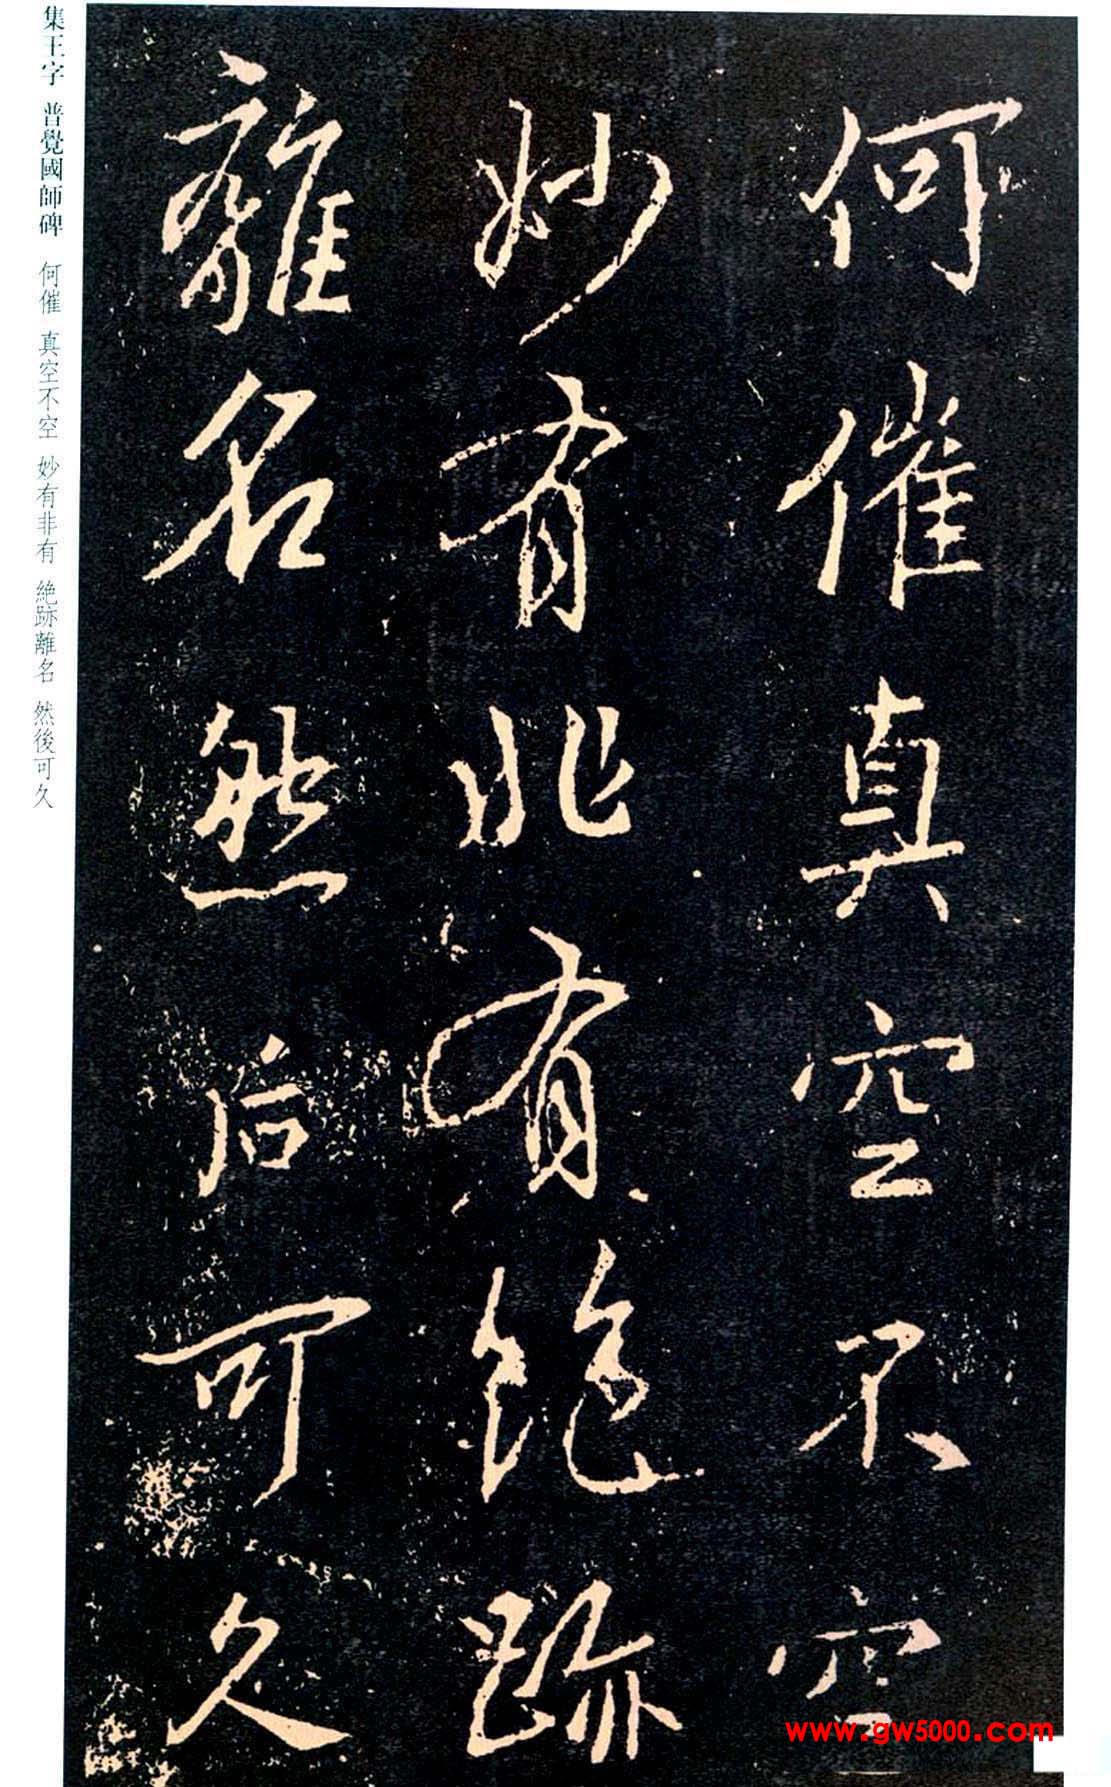 何催真空不空
妙有非有絶跡
離名然后可久
集王字 普覺國師碑 何催 真空不空 妙有非有 絶跡離名 然後可久
www.gw5000.com